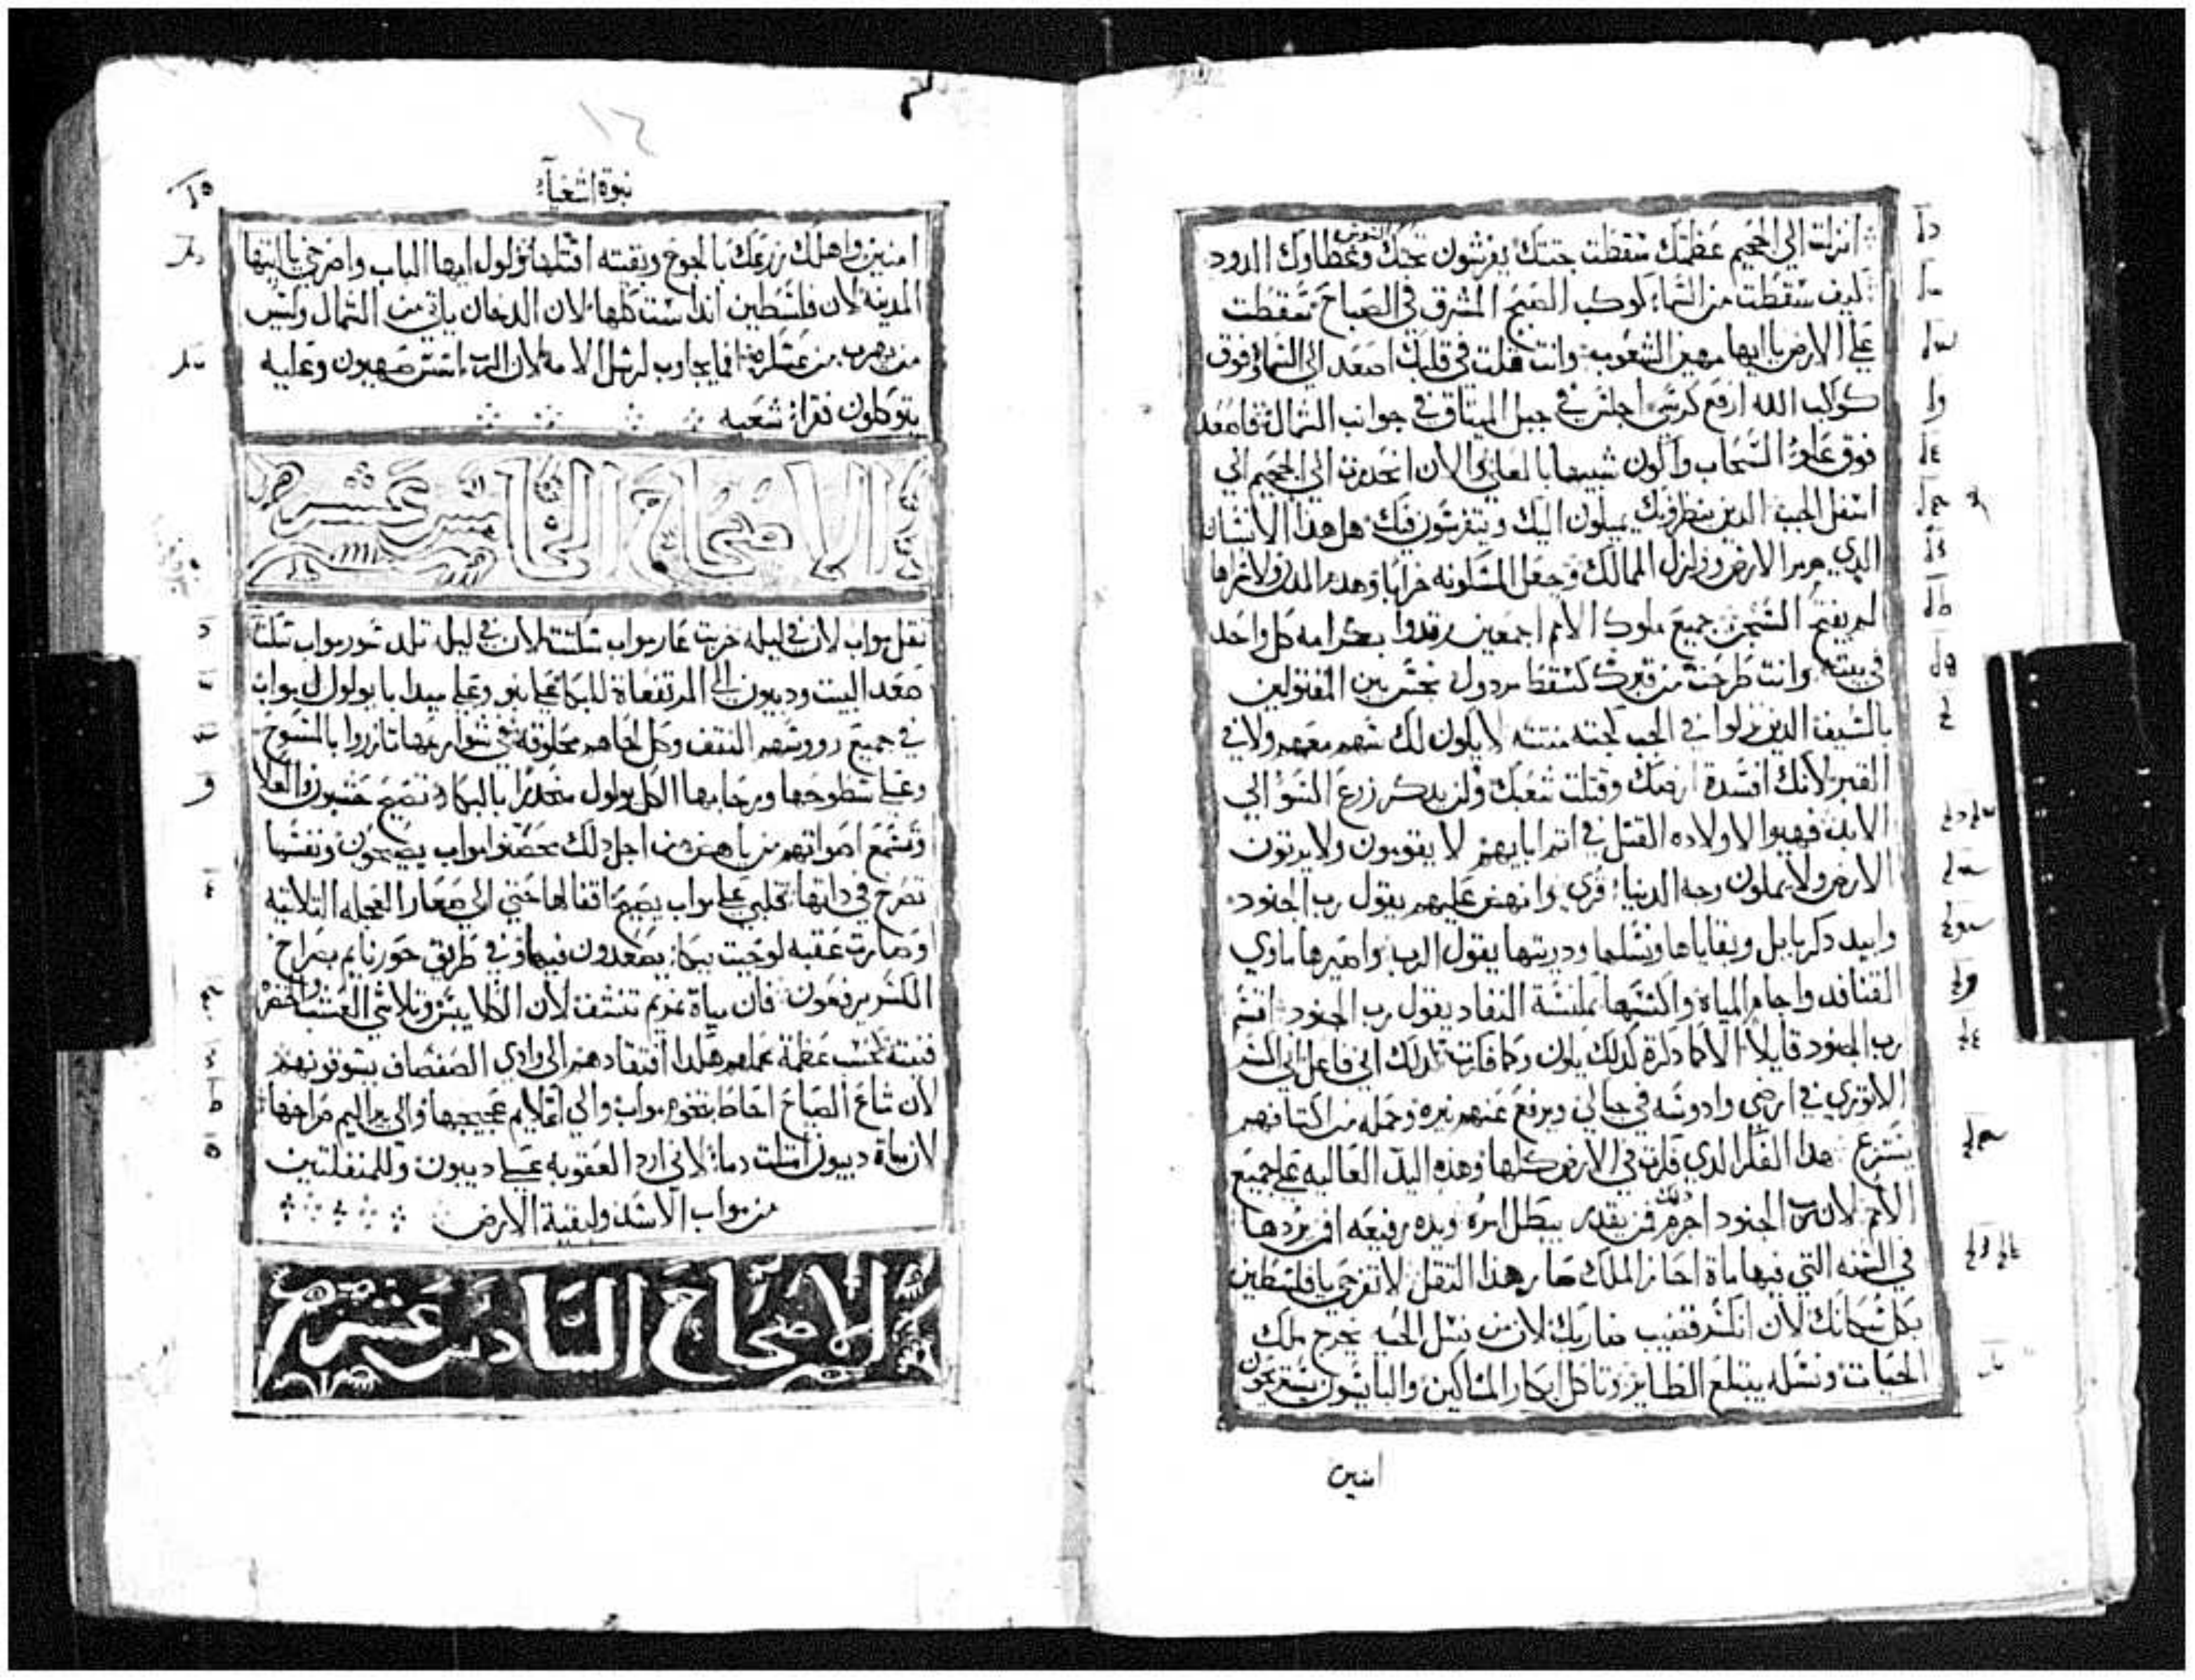 انزلت الي الجحيم عظمتك سقطت جتتك يفرشون تحتك السوس وغطاوك الدود
كيف سقطت من السماء كوكب الصبح المشرق في الصباح سقطت
علي الارض يا ايها مهين الشعوب وانت قلت في قلبك اصعد الي السما وفوق
كواكب الله ارفع كرسي اجلس في جبل الميتاق في جوانب الشمال فاصعد
فوق علو السحاب واكون شبيها بالعلي الان انحدرت الي الجحيم الي
اسفل الجب الدين ينظرونك يميلون اليك ويتفرسون فيك هل هذا الانسان
الدي هزم الارض وزلزل الممالك وجعل المسكونه خرابا وهدم المدن ولاسراها
لم يفتح السجن جميع ملوك الامم اجمعين رقدوا بكرامه كل واحد
في بيته وانت طرحت من قبرك كسقط مردول نجس بين المقتولين
بالسيف الدين نزلوا في الجب كجته منتنه لا يكون لك سهم معهم ولا في
القبر لانك افسدة ارضك وقتلت شعبك ولن يدكر زرع السو الي
الابد فهيوا لاولاده القتل في اتم ابايهم لا يقومون ولا يرتون
الارض ولا يملون وجه الدنيا قري وانهض عليهم يقول رب الجنود
وابيد دكر بابل وبقاياها ونسلها ودريتها يقول الرب واصيرها ماوي
القنافد واجام المياه واكنسها بمكنسة النفاد يقول رب الجنود اقسم
رب الجنود قايلا الا كما دكرة كدلك يكون وكما فكرت كدلك اني فاعل
الاتوري في ارضي وادوسه في جبالي ويرفع عنهم نيره وحمله من اكتافهم
ينتزع هدا الفكر الدي فكرت في الارض كلها وهذه اليد العاليه علي جميع
الامم لان رب الجنود امر فمن يقدر يبطل امره ويده رفيعه فمن يردها
في السنه التي فيها ماة احاز الملك صار هدا التقل لا تفرحي يا فلسطين
بكل سكانك لان انكسر قضيب ضاربك لان من نسل الحيه يخرج ملك
الحيات ونسله يبتلع الطاير وتاكل ابكار المساكين والبايسون يستريحون
امنين
١٦
نبوة اشعيا
امنين واهلك زرعك بالجوع وبقيته اقتلها ولول ايها الباب واصرخي يا ايتها
المدينه لان فلسطين اندست كلها لان الدخان ياتي من الشمال وليس
من يهرب من عسكره فما يجاوب لرسل الامه لان الرب اسس صهيون وعليه
يتوكلون فقراء شعبه
الاصحاح الخامس عشر
تقل مواب لان في ليله خربت عار مواب سكتت لان في ليله تلد سور مواب سكتت
صعد البيت وديبون الي المرتفعاة للبكا علي نبو وعلي ميدابا يولول ل مواب
في جميع رووسهم النتف وكل لحاهم محلوقه في شوارعها تازروا بالمسوح
وعلي سطوحها ورحابها الكل يولول منحدرا بالبكا تصيح حشبون والعلا
وتسمع اصواتهم من ياهص من اجل دلك محصنوا مواب يصيحون ونفسها
تصرخ في داتها قلبي علي مواب يصيح اقفالها حتي الي صغار العجله التلاتيه
وصارت عقبه لوحيت ببكا يصعدون فيها وفي طريق حورنايم بصراخ
الكسر يرفعون فان مياة نمريم تنشف لان الكلا يبس وتلاشي العشب والخضر
فنيت كحسب عظمة عملهم هكدا افتقادهم الي وادي الصفصاف يسوقونهم
لان شاع الصياح احاط بتخوم مواب والي اغلايم عجيجها والي بير اليم صراخها
لان مياة ديبون امتلت دما لاني ازد العقوبه علي ديبون وللمنفلتين
من مواب الاسد ولبقية الارض
الاصحاح السادس عشر